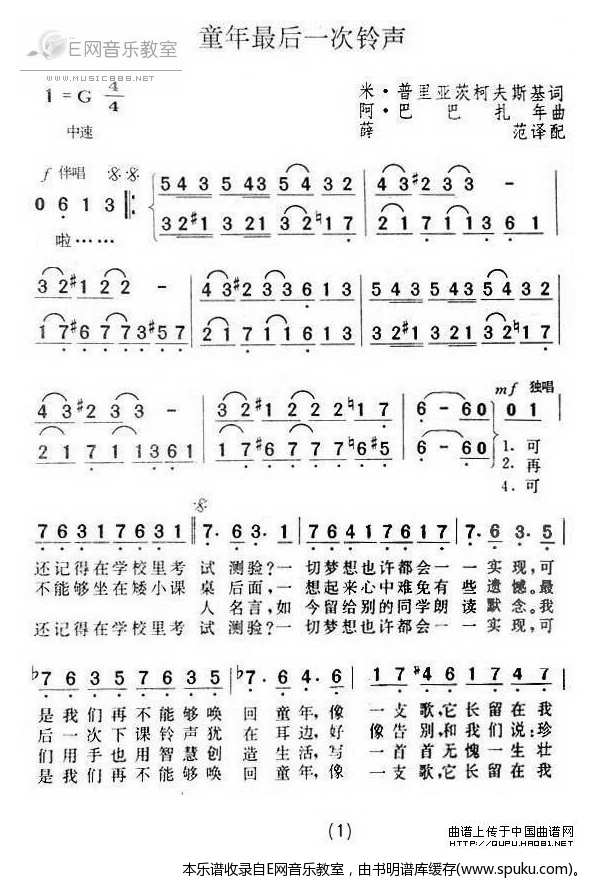 E网音乐教室
WWW.MUSIC888.NET
童年最后一次铃声
1=G 4/4
中速
米·普里亚茨柯夫斯基词
阿·巴巴扎年曲
薛 范译配
f 伴唱
0 6 1 3
5 4 3 5 43 5 4 32 4 3 #2 3 3 -
啦……
3 2 #1 2 2 - 4 3 #2 3 3 6 1 3 5 43 5 43 5 4 3 2
mf 独唱
4 3 #2 3 3 - 3 2 #1 2 2 2 ♮1 7 6 - 6 0 0 1
1.可
2.再
4.可
7 6 3 1 7 6 3 1 7. 6 3. 1 7 6 4 1 7 6 7 1 7. 6 3. 5
还记得在学校里考 试测验?一 切梦想也许都会一 一实现,可
不能够坐在矮小课 桌后面,一 想起来心中难免有 些遗憾。最
人名言,如 今留给别的同学朗 读默念。我
还记得在学校里考 试测验?一 切梦想也许都会一 一实现,可
♭7 6 3 5 7 6 3 5 ♭7. 6 4. 6 1 7 #4 6 1 7 4 7
是我们再不能够唤 回童年,像 一支歌,它长留在我
后一次下课铃声犹 在耳边,好 像告别,和我们说:珍
们用手也用智慧创 造生活,写 一首首无愧一生壮
是我们再不能够唤 回童年,像 一支歌,它长留在我
(1)
曲谱上传于中国曲谱网
HTTP://QUPU.HAO81.NET
本乐谱收录自E网音乐教室,由书明谱库缓存(www.spuku.com)。